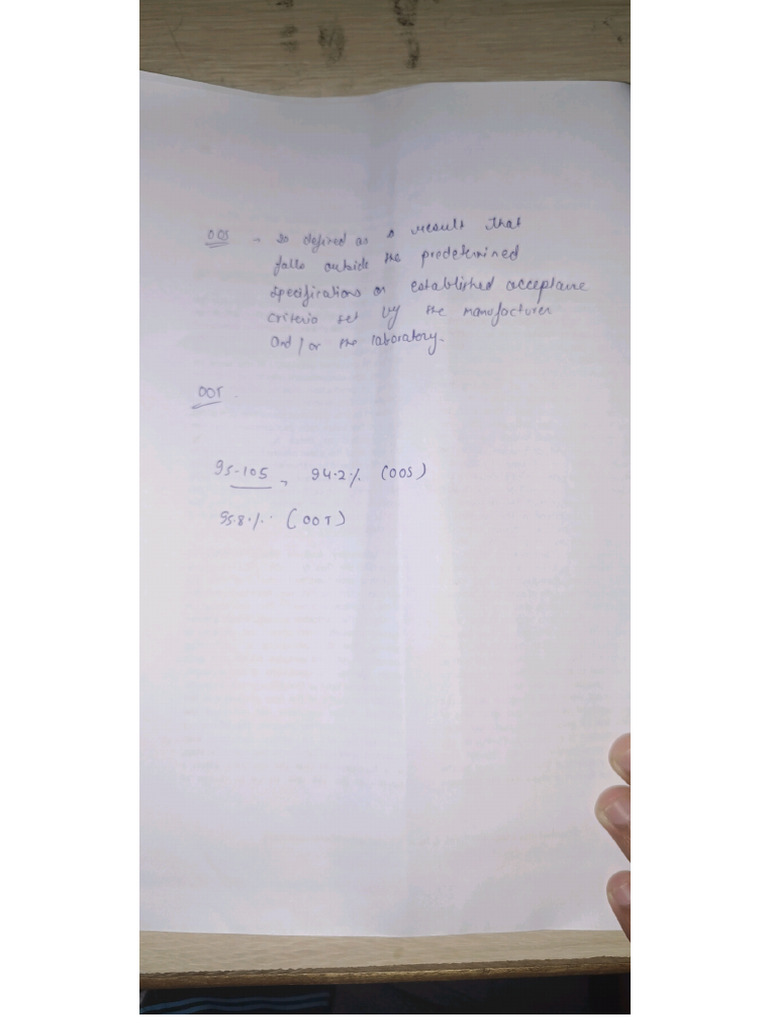 OOS → Is defined as a result that
falls outside the predetermined
specifications or established acceptance
criteria set by the manufacturer
and/or the laboratory.
OOT
95-105, 94.2% (OOS)
95.8% (OOT)